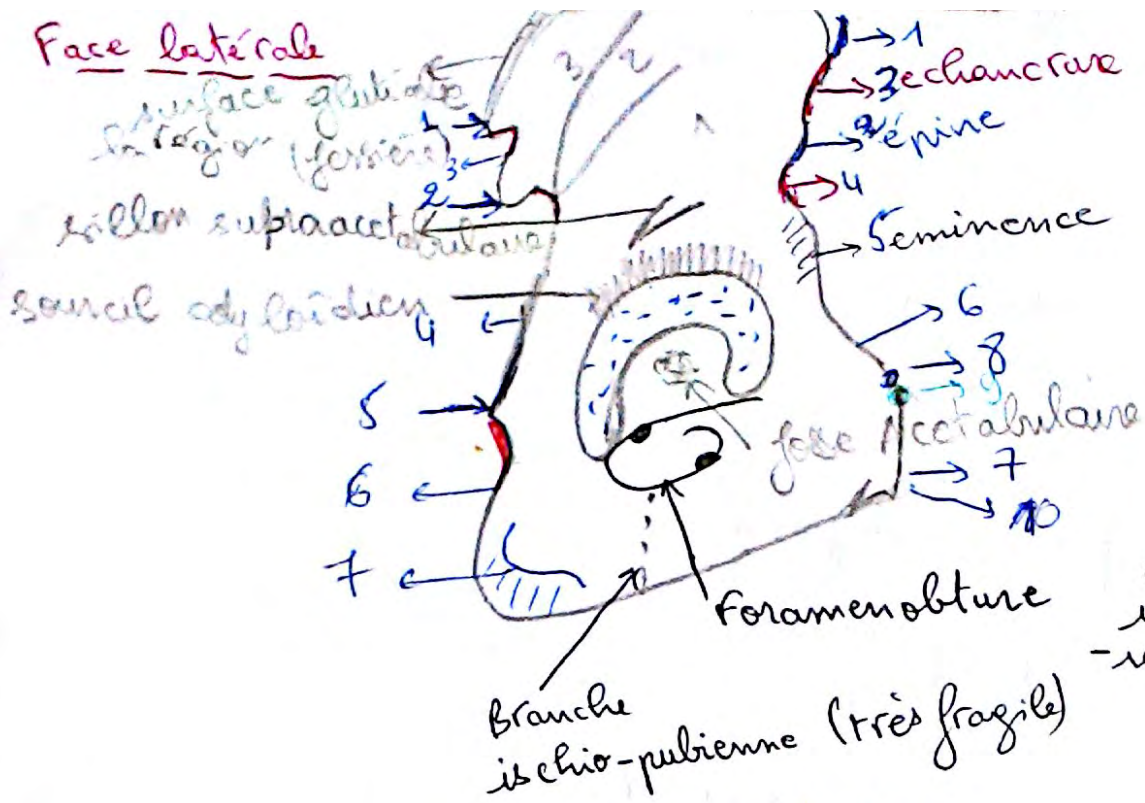 Face latérale
surface glutéale
région (fessière)
sillon supraacetabulaire
sourcil
1
3
2
4
5
6
7
3
2
1
3 echancrure
2 épine
4
5 eminence
6
8
9
fosse Acetabulaire
7
10
Foramen obture
Branche
ischio-pubienne (très fragile)